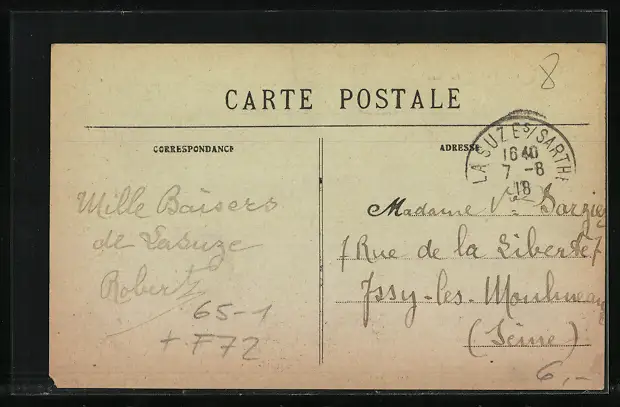 8
CARTE POSTALE
CORRESPONDANCE
ADRESSE
LA SUZE S/SARTHE
16 40
7 -8
18
Mille Baisers
de Lasuze
Robert
65-1
+ F72
Madame Ve
7 Rue de la Liberté 7
Issy-les-Moulineaux
(Seine)
6,-